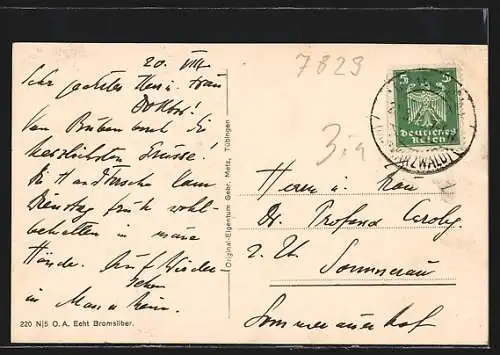 20. VIII
Sehr geehrter Herr u. Frau
Doktor!
Von Buben und die
herzlichsten Grüsse!
Die Handtasche kam
Dienstag früh wohl-
behalten in meine
Hände. Auf Wieder-
sehen
in Mannheim.
220 N/5 O. A. Echt Bromsilber.
Original-Eigentum Gebr. Metz, Tübingen
7829
3.-
5 5
Deutsches
Reich
(SCHWARZWALD)
Herrn u. Frau
Dr.
z. Zt. Sommerau
Sommerauer hof